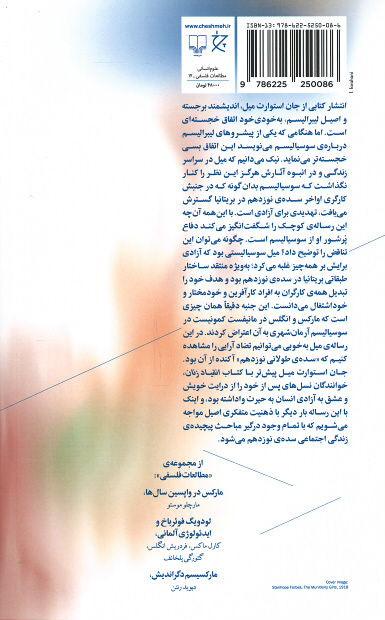 www.cheshmeh.ir
علوم‌انسانی
مطالعات فلسفی ـ ۱۲
۴۸۰۰۰ تومان
ISBN-13: 978-622-5250-08-6
9 786225 250086
انتشار کتابی از جان استوارت میل، اندیشمند برجسته
و اصیل لیبرالیسم، به‌خودی‌خود اتفاق خجسته‌ای
است. اما هنگامی که یکی از پیشروهای لیبرالیسم
درباره‌ی سوسیالیسم می‌نویسد این اتفاق بسی
خجسته‌تر می‌نماید. نیک می‌دانیم که میل در سراسر
زندگی و در انبوه آثارش هرگز این نظر را کنار
نگذاشت که سوسیالیسم بدان گونه که در جنبش
کارگری اواخر سده‌ی نوزدهم در بریتانیا گسترش
می‌یافت، تهدیدی برای آزادی است. با این همه آن‌چه
این رساله‌ی کوچک را شگفت‌انگیز می‌کند دفاع
پُرشور او از سوسیالیسم است. چگونه می‌توان این
تناقض را توضیح داد؟ میل سوسیالیستی بود که آزادی
برایش بر همه‌چیز غلبه می‌کرد؛ به‌ویژه منتقد ساختار
طبقاتی بریتانیا در سده‌ی نوزدهم بود و هدف خود را
تبدیل همه‌ی کارگران به افراد کارآفرین و خودمختار و
خوداشتغال می‌دانست. این جنبه دقیقاً همان چیزی
است که مارکس و انگلس در مانیفست کمونیست در
سوسیالیسم آرمان‌شهری به آن اعتراض کردند. در این
رساله‌ی میل به‌خوبی می‌توانیم تضاد آرایی را مشاهده
کنیم که «سده‌ی طولانی نوزدهم» آکنده از آن بود.
جان استوارت میل پیش‌تر با کتاب انقیاد زنان،
خوانندگان نسل‌های پس از خود را از درایت خویش
و عشق به آزادی انسان به حیرت واداشته بود، و اینک
با این رساله بار دیگر با ذهنیت متفکری اصیل مواجه
می‌شویم که با تمام وجود درگیر مباحث پیچیده‌ی
زندگی اجتماعی سده‌ی نوزدهم می‌شود.
از مجموعه‌ی
«مطالعات فلسفی»:
مارکس در واپسین سال‌ها،
مارچلو موستو
لودویگ فوئرباخ و
ایدئولوژی آلمانی،
کارل مارکس، فردریش انگلس،
گئورگی پلخانف
مارکسیسم دگراندیش،
دیوید رنتن
Cover Image:
Stanhope Forbes, The Munitions Girls, 1918